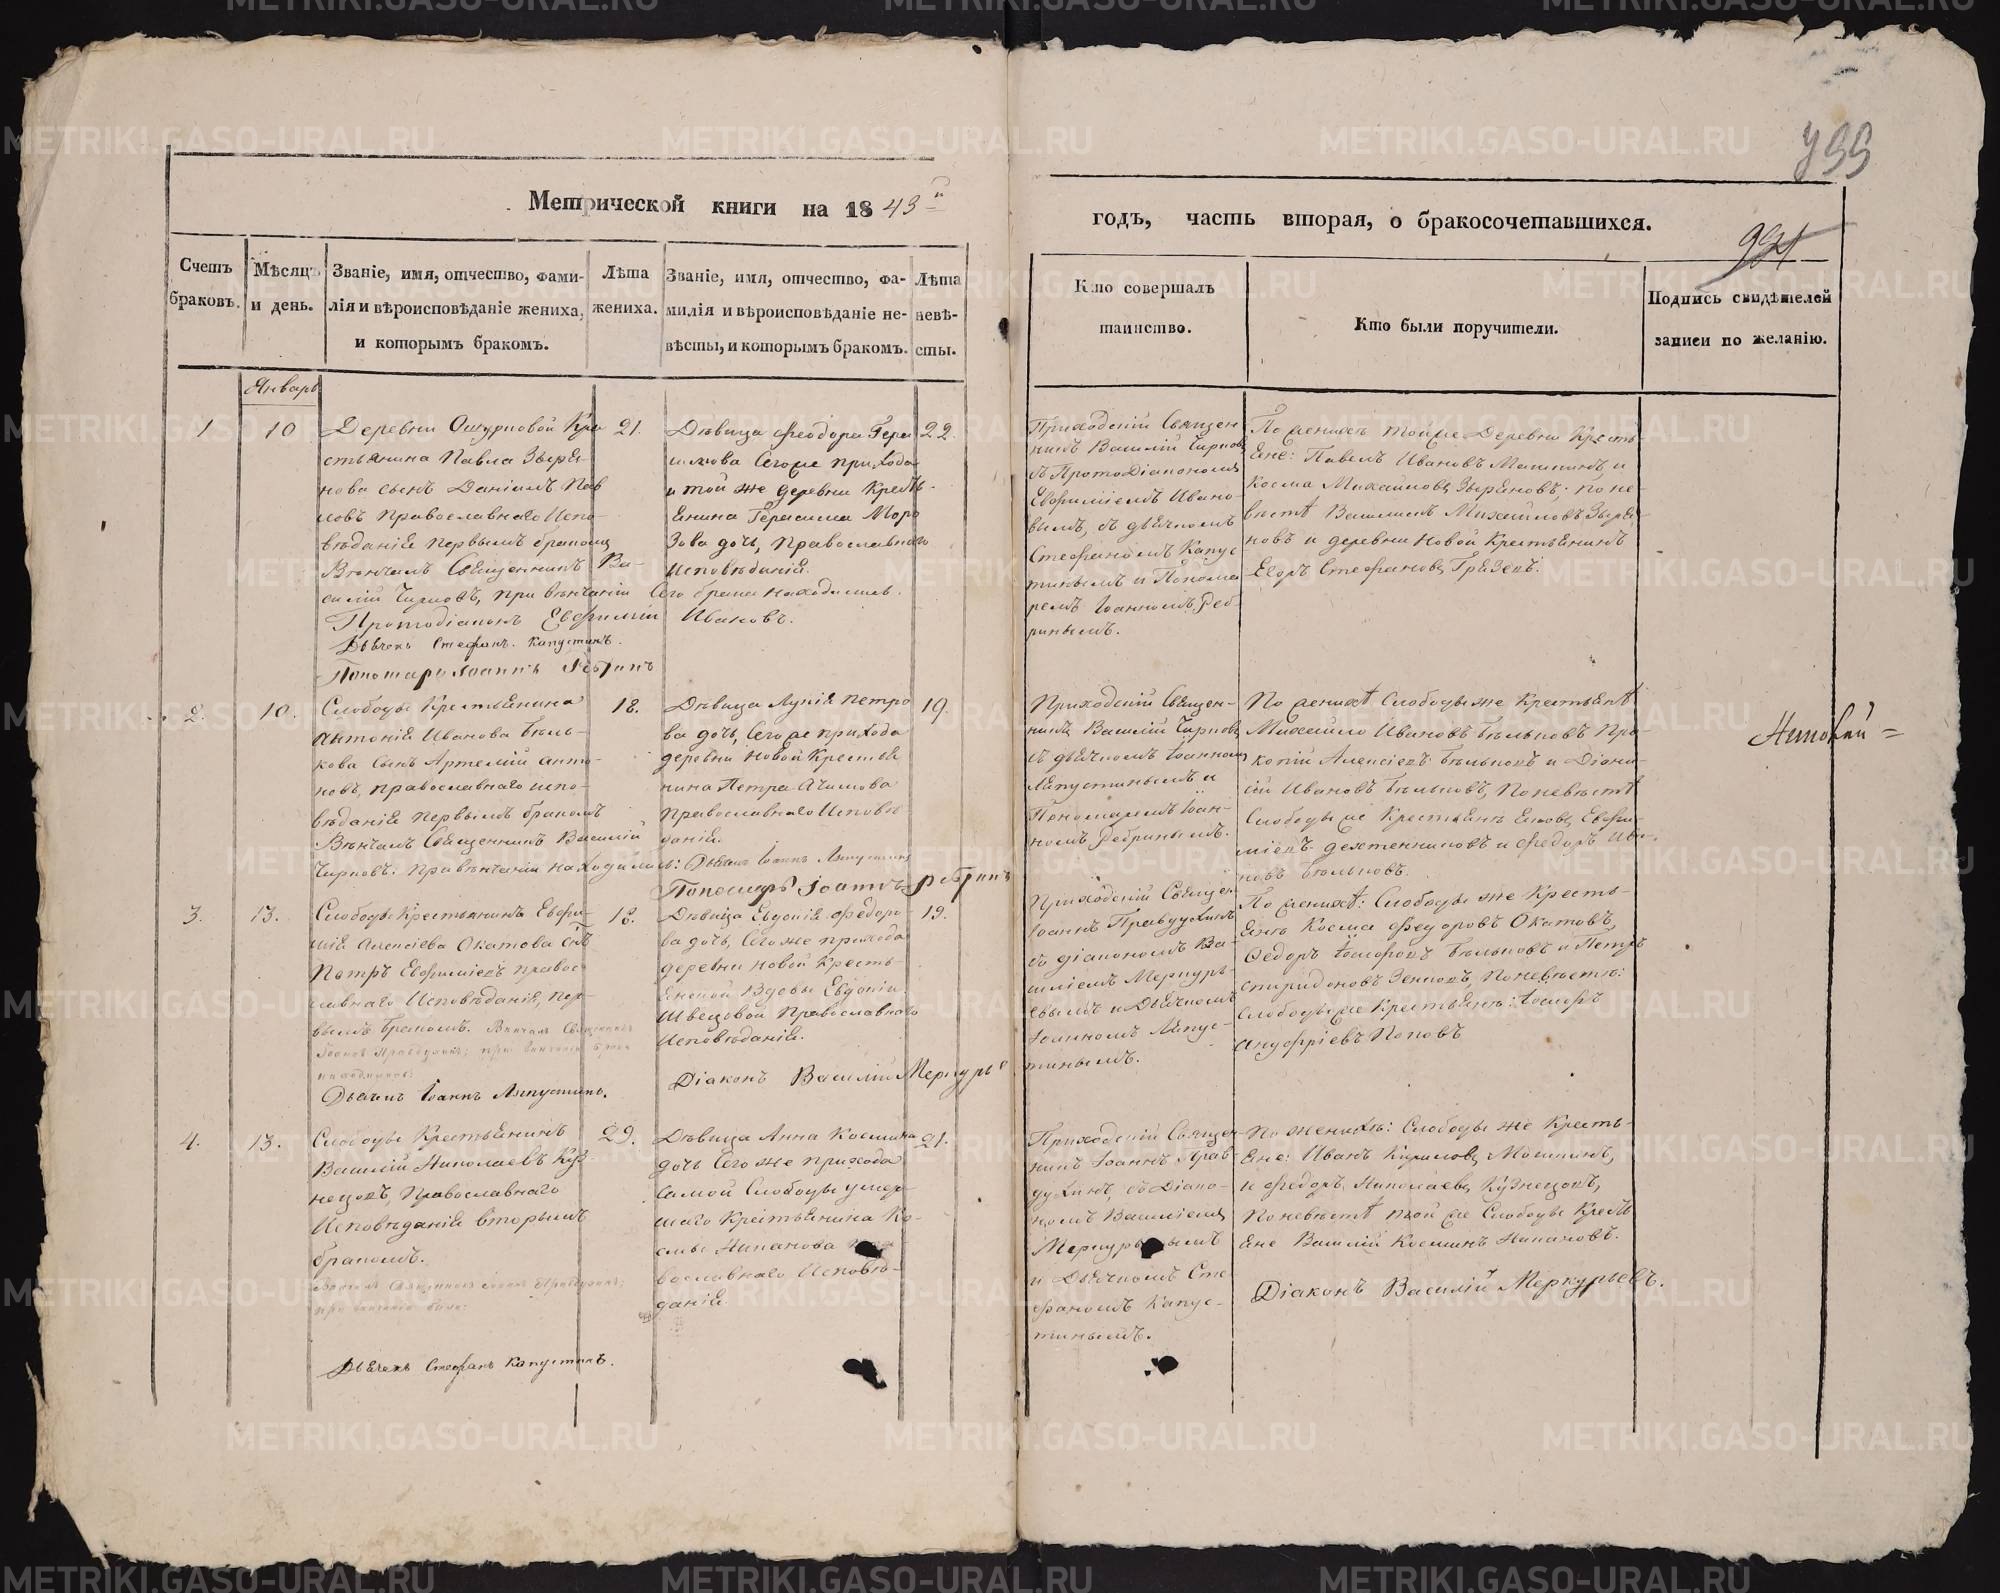 Метрической книги на 1843й
годъ, часть вторая, о бракосочетавшихся.
Счетъ браковъ.
Мѣсяцъ и день.
Званіе, имя, отчество, фами-
лія и вѣроисповѣданіе жениха,
и которымъ бракомъ.
Лѣта
жениха.
Званіе, имя, отчество, фа-
милія и вѣроисповѣданіе не-
вѣсты, и которымъ бракомъ.
Лѣта
невѣ-
сты.
Кто совершалъ
таинство.
Кто были поручители.
Подпись свидѣтелей
записи по желанію.
Январь
1
10
Деревни Ошурковой Кре
стьянина Павла Зыря-
нова сынъ Даніилъ Пав
ловъ православнаго испо-
вѣданія первымъ бракомъ
Вѣнчалъ Священникъ Ва-
силій Чирковъ, при вѣнчаніи сего брака находились.
Протодіаконъ Евфимій Ивановъ.
Дьячекъ Стефанъ Капустинъ.
Пономарь Іоаннъ Ребринъ
21.
Дѣвица Феодора Гера
симова сего же прихода
и той же деревни Кресть-
янина Герасима Моро
зова дочь, православнаго
исповѣданія.
22.
Приходскій Священ
никъ Василій Чирковъ
съ Протодіакономъ
Евфиміемъ Ивано-
вымъ, съ дьячкомъ
Стефаномъ Капус
тинымъ и Понома
ремъ Іоанномъ Реб-
ринымъ.
По женихѣ той же деревни Кресть
яне: Павелъ Ивановъ Машкинъ, и
Косма Михайловъ Зыряновъ; по не
вѣстѣ Василій Михайловъ Зыря-
новъ и деревни Новой Крестьянинъ
Егоръ Стефановъ
2.
10.
Слободы Крестьянина
Антонія Иванова Бѣль-
кова сынъ Артемій Анто-
новъ, православнаго испо-
вѣданія первымъ бракомъ
Вѣнчалъ Священникъ Василій
Чирковъ. При вѣнчаніи находились: Дьячекъ Іоаннъ Ляпустинъ
Пономарь Іоаннъ Ребринъ
18.
Дѣвица Лукія Петро
ва дочь, сего же прихода
деревни Новой Крестья
нина Петра
православнаго исповѣ
данія.
19.
Приходскій Священ-
никъ Василій Чирковъ
съ дьячкомъ Іоанномъ
Ляпустинымъ и
Пономаремъ Іоан-
номъ Ребринымъ.
По женихѣ Слободы же Крестьянѣ
Михайло Ивановъ Бѣльковъ Про-
копій Алексіевъ Бѣльковъ и Діони-
сій Ивановъ Бѣльковъ, по невѣстѣ
Слободы же Крестьянѣ Евфи-
міевъ и Федоръ Ива-
новъ Бѣльковъ.
3.
13.
Слободы Крестьянинъ Евфи-
мія Алексіева Окатова сынъ
Петръ Евфиміевъ правос-
лавнаго исповѣданія, пер-
вымъ бракомъ. Вѣнчалъ Священникъ
Іоаннъ Правдухинъ; при вѣнчаніи брака
находились:
Дьячекъ Іоаннъ Ляпустинъ.
18.
Дѣвица Евдокія Федоро
ва дочь, сего же прихода
деревни Новой Кресть-
янской вдовы Евдокіи
Швецовой православнаго
исповѣданія.
Діаконъ Василій Меркурье
19.
Приходскій Священ
Іоаннъ Правдухинъ
съ діакономъ Ва-
силіемъ Меркурь-
евымъ и дьячкомъ
Іоанномъ Ляпус-
тинымъ.
По женихѣ: Слободы же Кресть-
янѣ Косма Федоровъ Окатовъ,
Федоръ Іосифовъ Бѣльковъ и Петръ
Спиридоновъ Зенковъ, по невѣстѣ:
Слободы же Крестьянѣ: Іосифъ
Ануфріевъ Поповъ
4.
13.
Слободы Крестьянинъ
Василій Николаевъ Куз-
нецовъ, православнаго
исповѣданія вторымъ
бракомъ.
Вѣнчалъ Священникъ Іоаннъ Правдухинъ;
при вѣнчаніи были:
Дьячекъ Стефанъ Капустинъ.
29.
Дѣвица Анна Космина
дочь сего же прихода
самой Слободы умер-
шаго Крестьянина Ко-
смы Нипанова пра
вославнаго исповѣ-
данія.
21.
Приходскій Священ-
никъ Іоаннъ Прав-
духинъ, съ Діако-
номъ Василіемъ
Меркурьевымъ
и Дьячкомъ Сте
фаномъ Капус-
тинымъ.
По женихѣ: Слободы же Кресть-
яне: Иванъ Кириловъ Мокшинъ,
и Федоръ Николаевъ Кузнецовъ,
по невѣстѣ той же Слободы Кресть
яне Василій Косминъ Нипановъ.
Діаконъ Василій Меркурьевъ.
METRIKI.GASO-URAL.RU